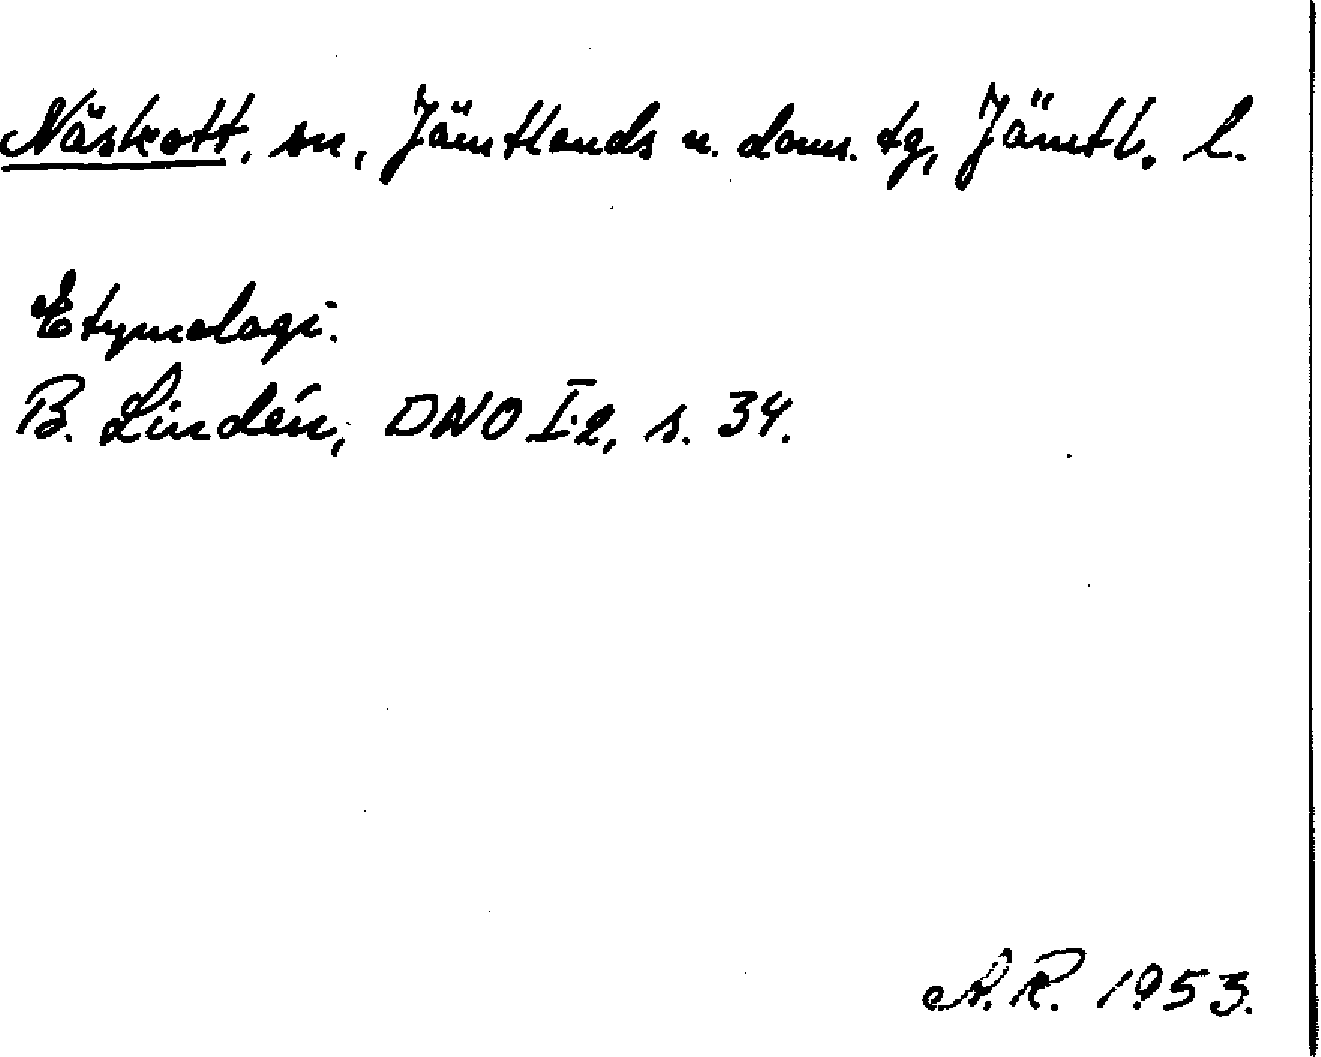 Näskott, sn, Jämtlands n. doms. tg, Jämtl. l.
Etymologi.
B. Lindén, DNO I:2, s. 34.
A.R. 1953.